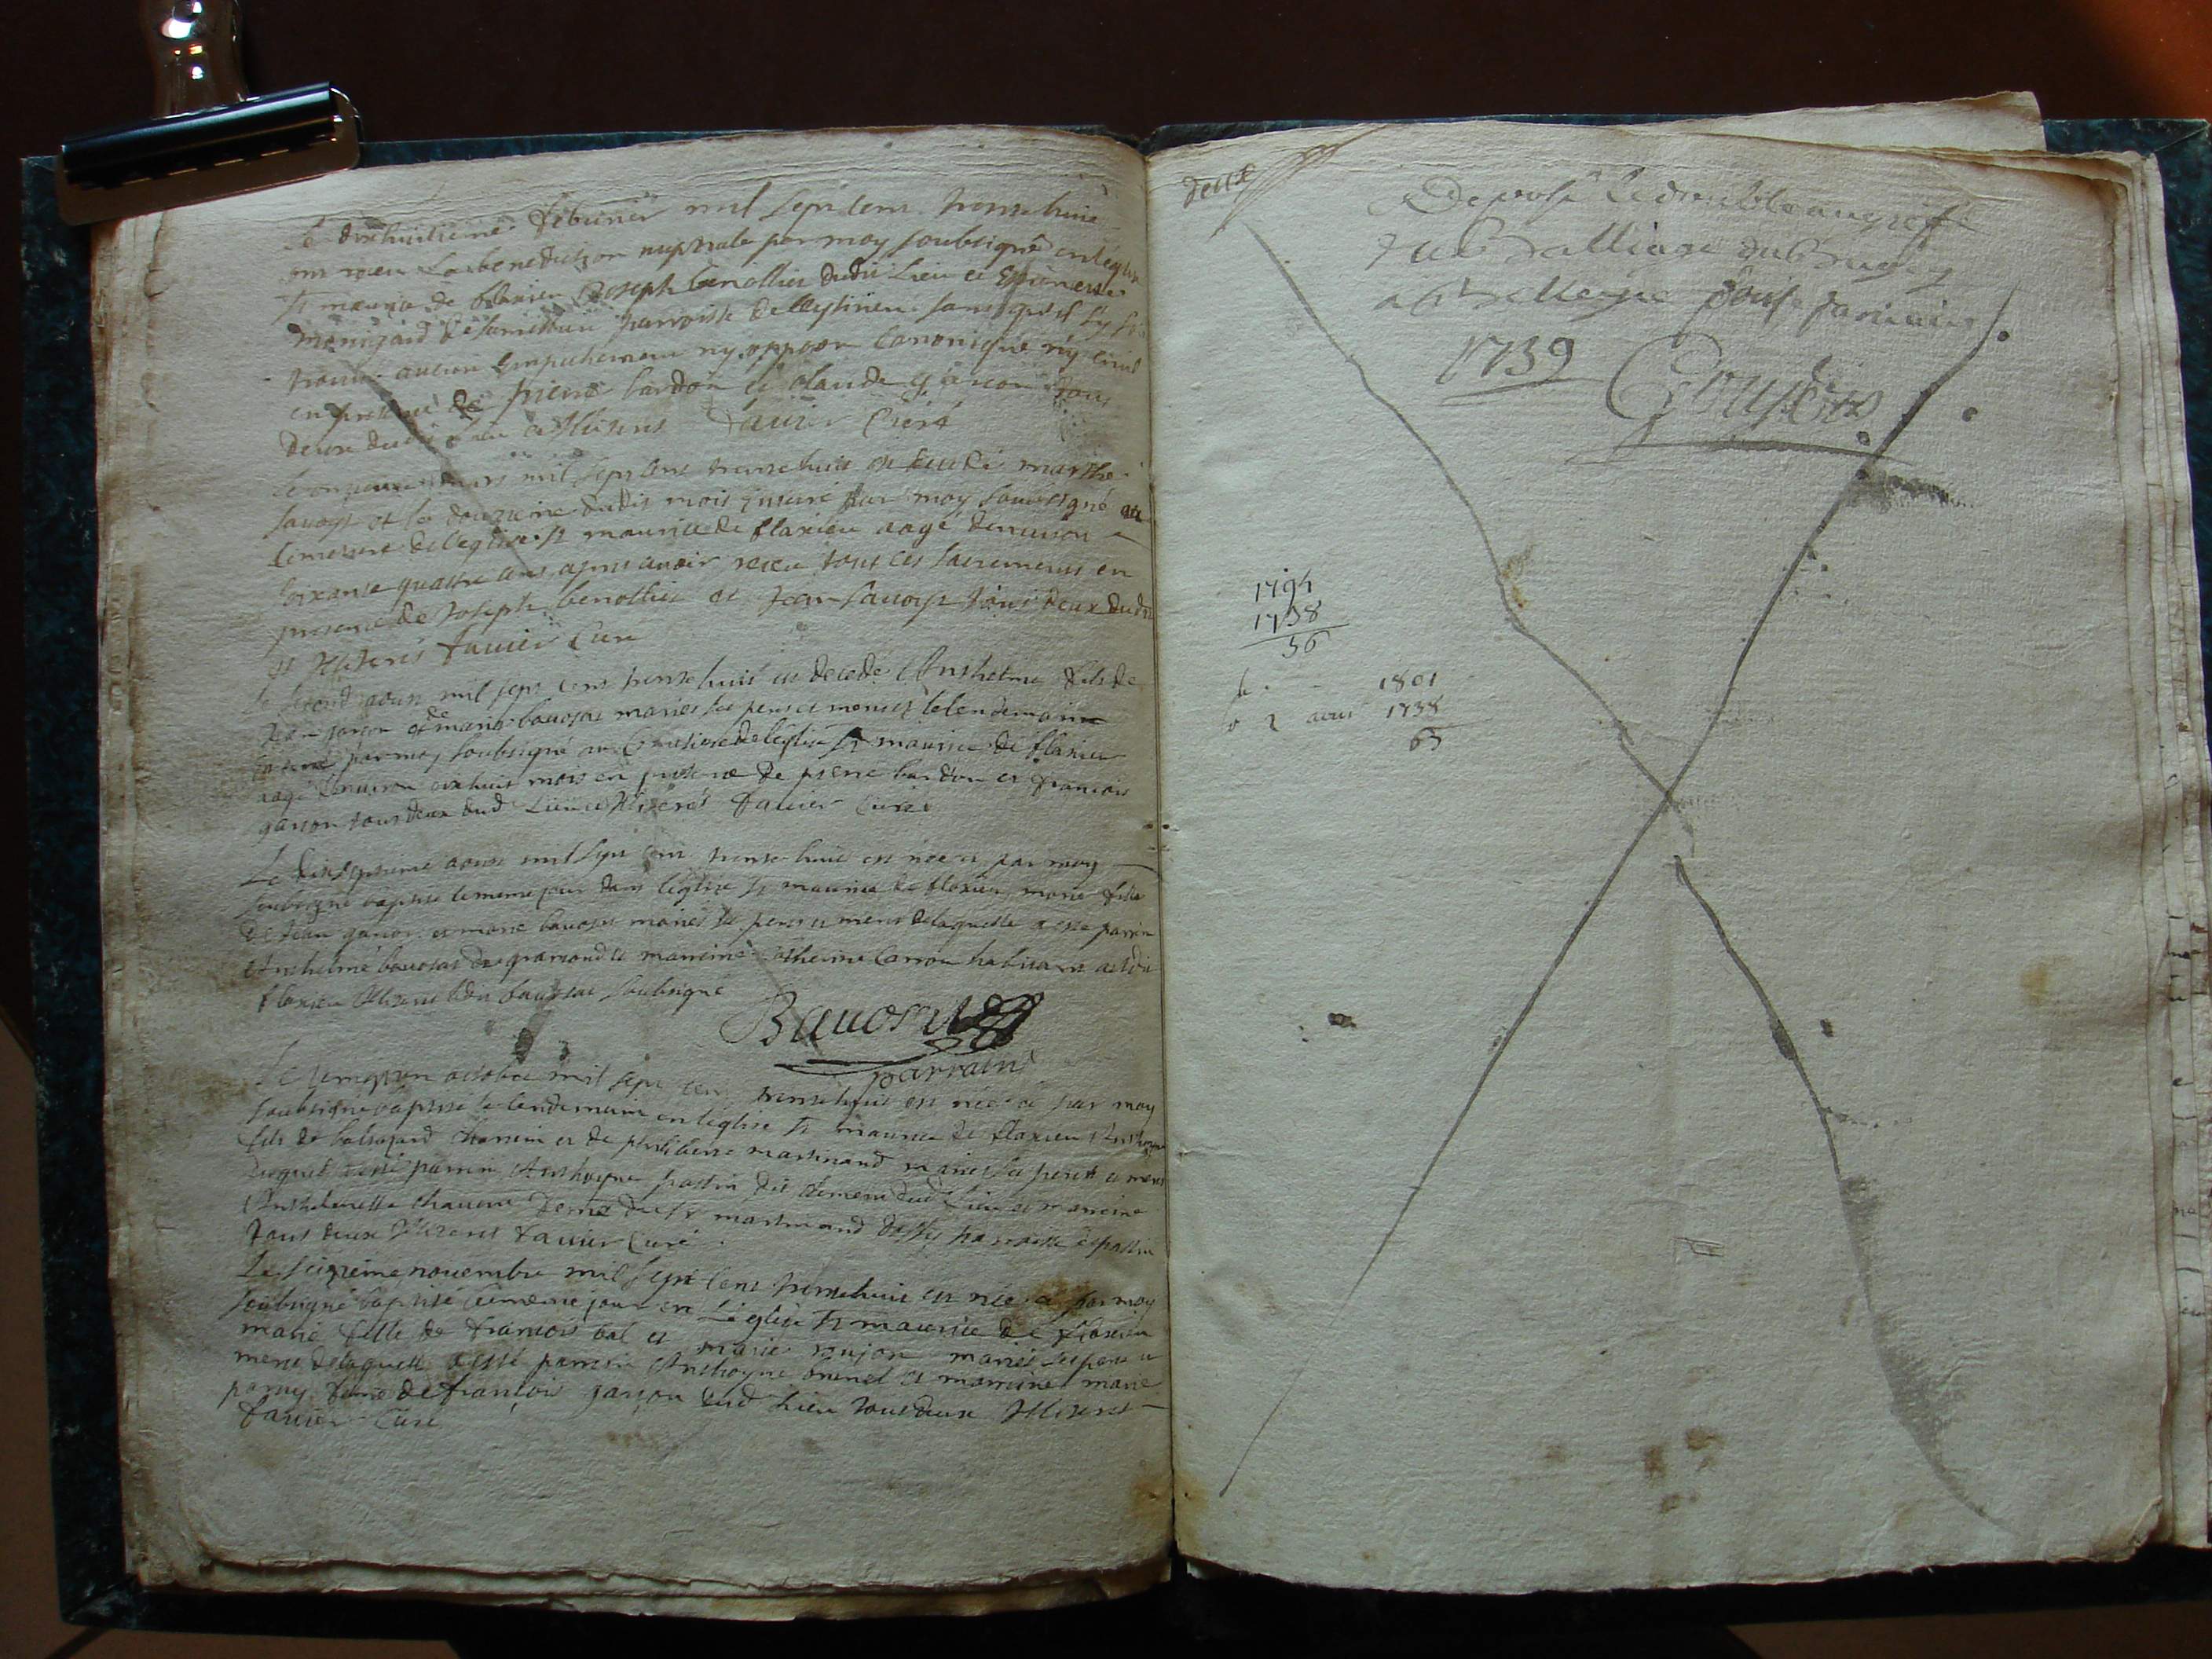 Le dixhuitieme febvrier mil sept cens trente huit
ont receu la benediction nuptiale par moy soubsigné en leglise
st maurice de flaxieu Joseph benottier dudit lieu et
parroisse de Ceyzirieu sans quil sy soit
trouvé aucun empechement ny opposon canonique ny civil
en presence de pierre bardon et claude garson tous
deux dudit lieu illiteres favier Curé
Le onzieme mars mil sept cens trente huit est decedé marthe
savoye et le douzieme dudit mois enterré par moy soubsigné au
cimetiere de leglise st maurice de flaxieu aagé denviron
soixante quattre ans apres avoir receu tout les sacremens en
presence de Joseph benottier et Jean savoye tous deux dudit
et illiteres favier Curé
Le second avril mil sept cens trente huit est decedé Anthelme fils de
Jean garson et de marie bavosat mariés ses pere et mere et le lendemain
enterré par moy soubsigné au Cimetiere de leglise st maurice de flaxieu
aagé denviron dixhuit mois en presence de pierre bardon et francois
garson tous deux dud lieu illiteres favier Curé
Le dixseptieme aoust mil sept cens trente huit est née et par moy
soubsigné baptisée le meme jour dans leglise st maurice de flaxieu marie fille
de Jean garson et marie bavosat mariés ses pere et mere de laquelle a esté parrin
Anthelme bavosat de et marrine Catherine Carron habitant audit
flaxieu illiteres ledit bavosat soubsigné
Bavosat
parrain
Le vingt un octobre mil sept cens trente huit est né et par moy
soubsigné baptisé le lendemain en leglise st maurice de flaxieu Anthoyne
fils de baltazard Charvin et de philiberte martinand mariés ses pere et mere
duquel a esté parrin Anthoyne pastin dit clement dud lieu et marrine
Anthelmette femme du sr martinand parroisse
tous deux illiteres favier Curé
Le seizieme novembre mil sept cens trente huit est née et par moy
soubsigné baptisé le meme jour en leglise st maurice de flaxieu
marie fille de francois bal et marie roujon mariés ses pere et
mere de laquelle a esté parrin Anthoyne brunet et marrine marie
femme de francois garson dud lieu tous deux illiteres
favier Curé
deux
Deposé le double au greffe
du Bailliage du Bugey
a Belley ce douse janvier
1739
1794
1738
56
1801
2 avril 1738
63